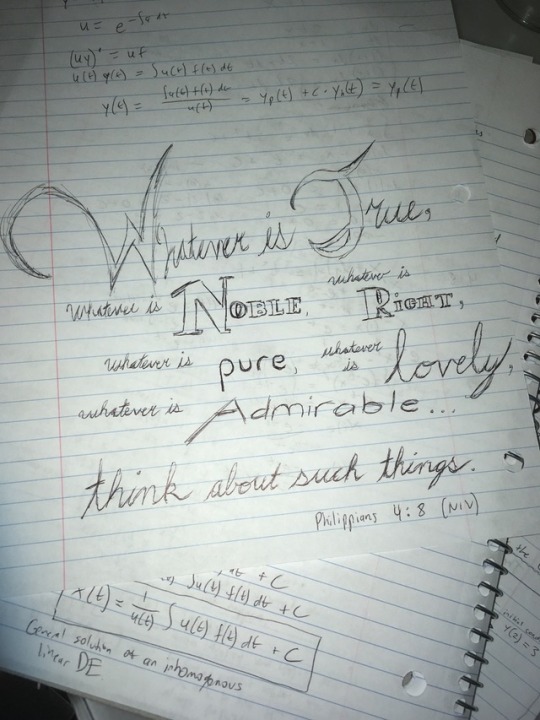 u = e^-∫a dt
(uy)' = uf
u(t) y(t) = ∫u(t) f(t) dt
y(t) = ∫u(t) f(t) dt / u(t) = yp(t) + c · yh(t) = yp(t)
Whatever is True,
whatever is NOBLE, whatever is RIGHT,
whatever is pure, whatever is lovely,
whatever is Admirable...
think about such things.
Philippians 4:8 (NIV)
dt + C
∫u(t) f(t) dt + C
x(t) = 1/u(t) ∫u(t) f(t) dt + C
General solution of an inhomogenous
linear DE
the
y(0) = 3